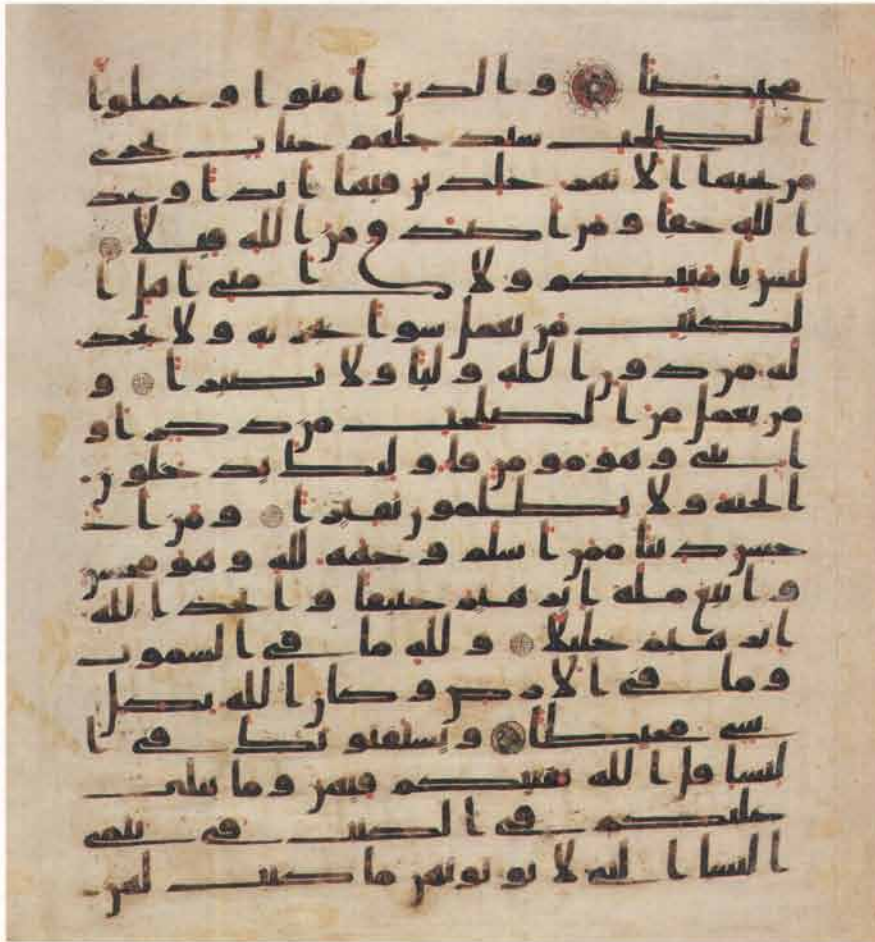 محيصا والذين امنوا وعملوا
الصلحت سندخلهم جنت تجرى
من تحتها الانهر خلدين فيها ابدا وعد
الله حقا ومن اصدق من الله قيلا
ليس بامنيكم ولا امنى اهل ا
لكتب من يعمل سوا يجز به ولا يجد
له من دون الله وليا ولا نصيرا و
من يعمل من الصلحت من ذكر او
انثى وهو مومن فاوليك يدخلون
الجنة ولا يظلمون نقيرا ومن ا
حسن دينا ممن اسلم وجهه لله وهو محسن
واتبع ملة ابرهيم حنيفا واتخذ الله
ابرهيم خليلا ولله ما فى السموت
وما فى الارض وكان الله بكل
شى محيطا ويستفتونك فى ا
لنسا قل الله يفتيكم فيهن وما يتلى
عليكم فى الكتب فى يتمى
النسا التى لا توتونهن ما كتب لهن